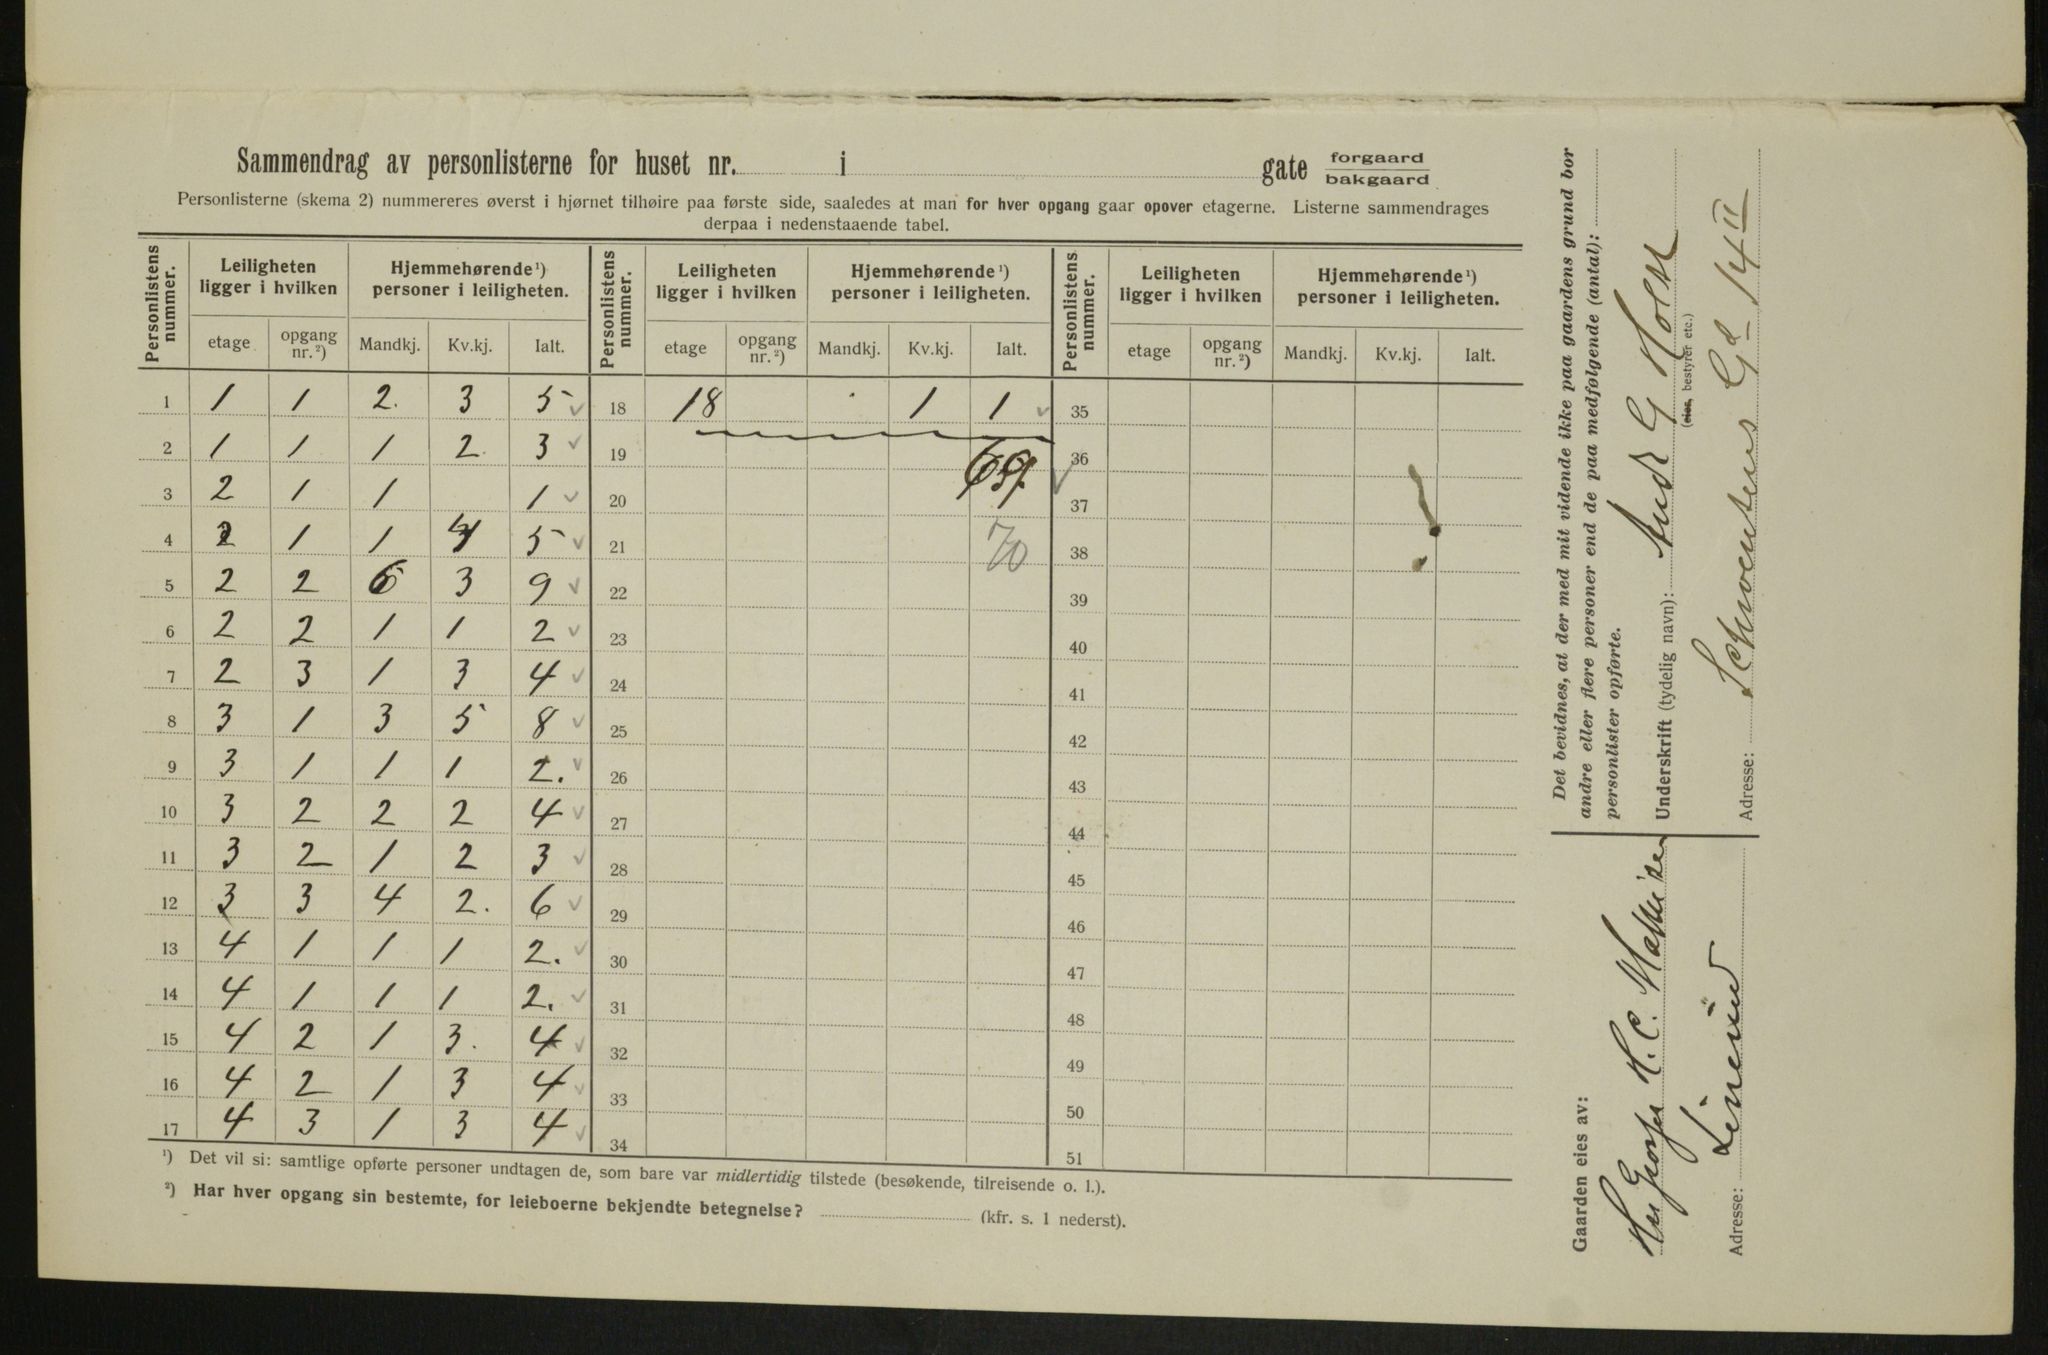 Sammendrag av personlisterne for huset nr. i gate forgaard bakgaard
Personlisterne (skema 2) nummereres øverst i hjørnet tilhøire paa første side, saaledes at man for hver opgang gaar opover etagerne. Listerne sammendrages
derpaa i nedenstaaende tabel.
Personlistens nummer. Leiligheten ligger i hvilken Hjemmehørende ¹) personer i leiligheten. Personlistens nummer. Leiligheten ligger i hvilken Hjemmehørende ¹) personer i leiligheten. Personlistens nummer. Leiligheten ligger i hvilken Hjemmehørende ¹) personer i leiligheten.
etage opgang nr. ²) Mandkj. Kv.kj. Ialt. etage opgang nr. ²) Mandkj. Kv.kj. Ialt. etage opgang nr. ²) Mandkj. Kv.kj. Ialt.
1 1 1 2. 3 5 ✓ 18 18 1 1 ✓ 35
2 1 1 1 2 3 ✓ 19 69. ✓ 36
3 2 1 1 1 ✓ 20 37
4 2 1 1 4 5 ✓ 21 70 38
5 2 2 6 3 9 ✓ 22 39
6 2 2 1 1 2 ✓ 23 40
7 2 3 1 3 4 ✓ 24 41
8 3 1 3 5 8 ✓ 25 42
9 3 1 1 1 2. ✓ 26 43
10 3 2 2 2 4 ✓ 27 44
11 3 2 1 2 3 ✓ 28 45
12 3 3 4 2. 6 ✓ 29 46
13 4 1 1 1 2. ✓ 30 47
14 4 1 1 1 2. ✓ 31 48
15 4 2 1 3. 4 ✓ 32 49
16 4 2 1 3 4 ✓ 33 50
17 4 3 1 3 4 ✓ 34 51
¹) Det vil si: samtlige opførte personer undtagen de, som bare var midlertidig tilstede (besøkende, tilreisende o. l.).
²) Har hver opgang sin bestemte, for leieboerne bekjendte betegnelse? (kfr. s. 1 nederst).
Det bevidnes, at der med mit vidende ikke paa gaardens grund bor
andre eller flere personer end de paa medfølgende (antal):
personlister opførte.
Underskrift (tydelig navn): Andr G Holst
(eier, bestyrer etc.)
Adresse: Schwensens Gd 14 II
Gaarden eies av:
H. C.
Adresse: